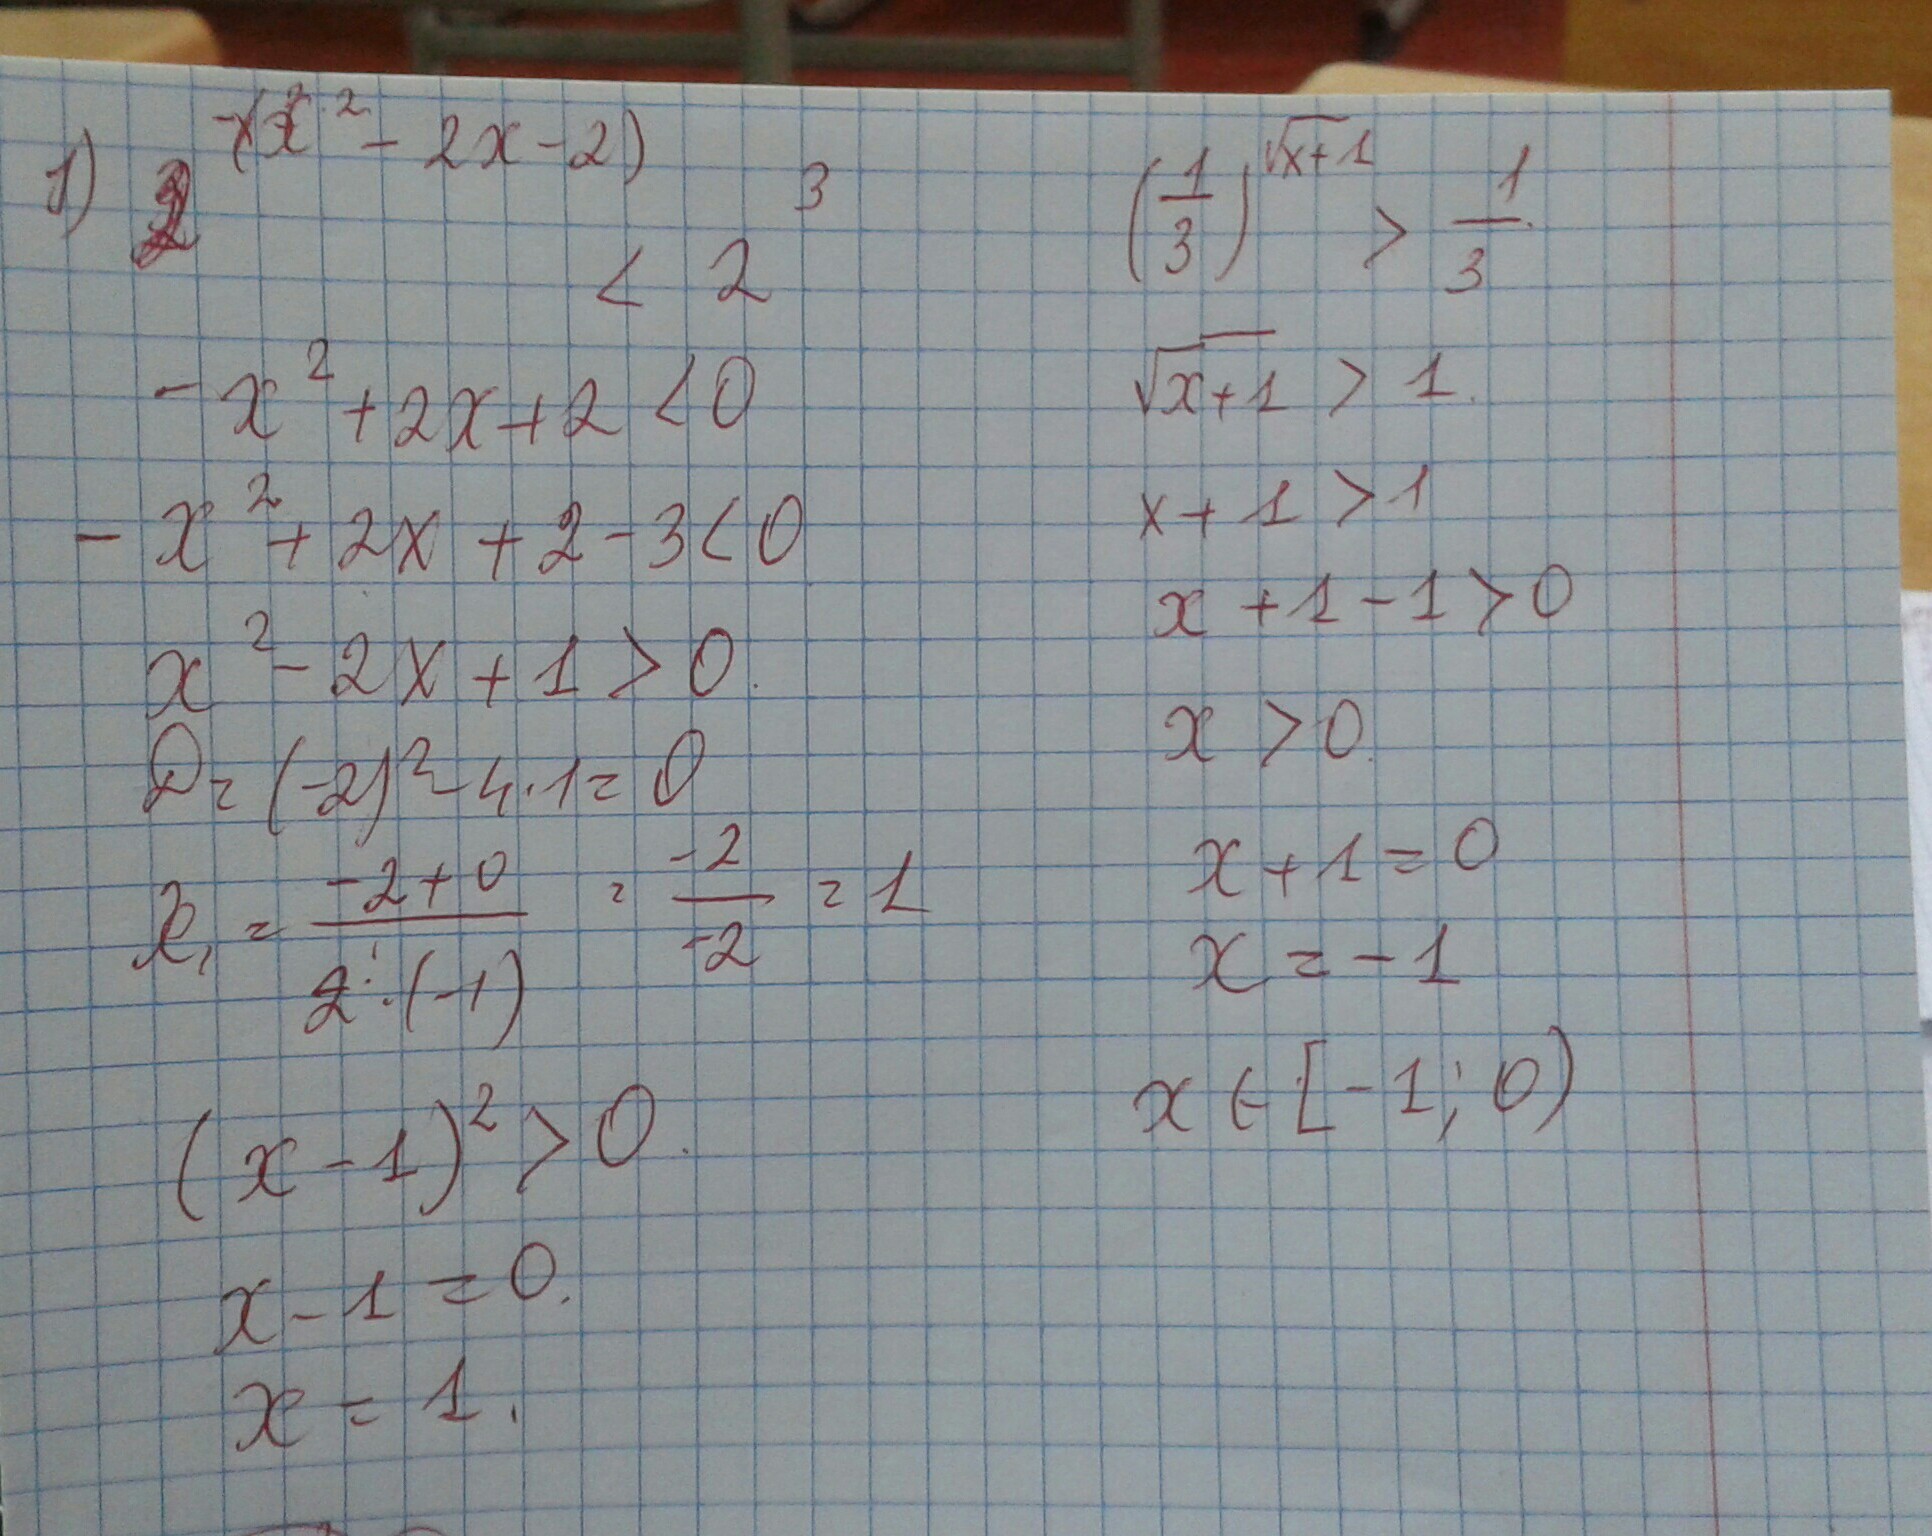 1) 2^{-(x^2 - 2x - 2)} < 2^3
-x^2 + 2x + 2 < 0
-x^2 + 2x + 2 - 3 < 0
x^2 - 2x + 1 > 0.
D = (-2)^2 - 4·1 = 0
x_1 = \frac{-2+0}{2·(-1)} = \frac{-2}{-2} = 1
(x - 1)^2 > 0.
x - 1 = 0.
x = 1.
(\frac{1}{3})^{\sqrt{x+1}} > \frac{1}{3}.
\sqrt{x+1} > 1.
x + 1 > 1
x + 1 - 1 > 0
x > 0.
x + 1 = 0
x = -1
x ∈ [-1; 0)